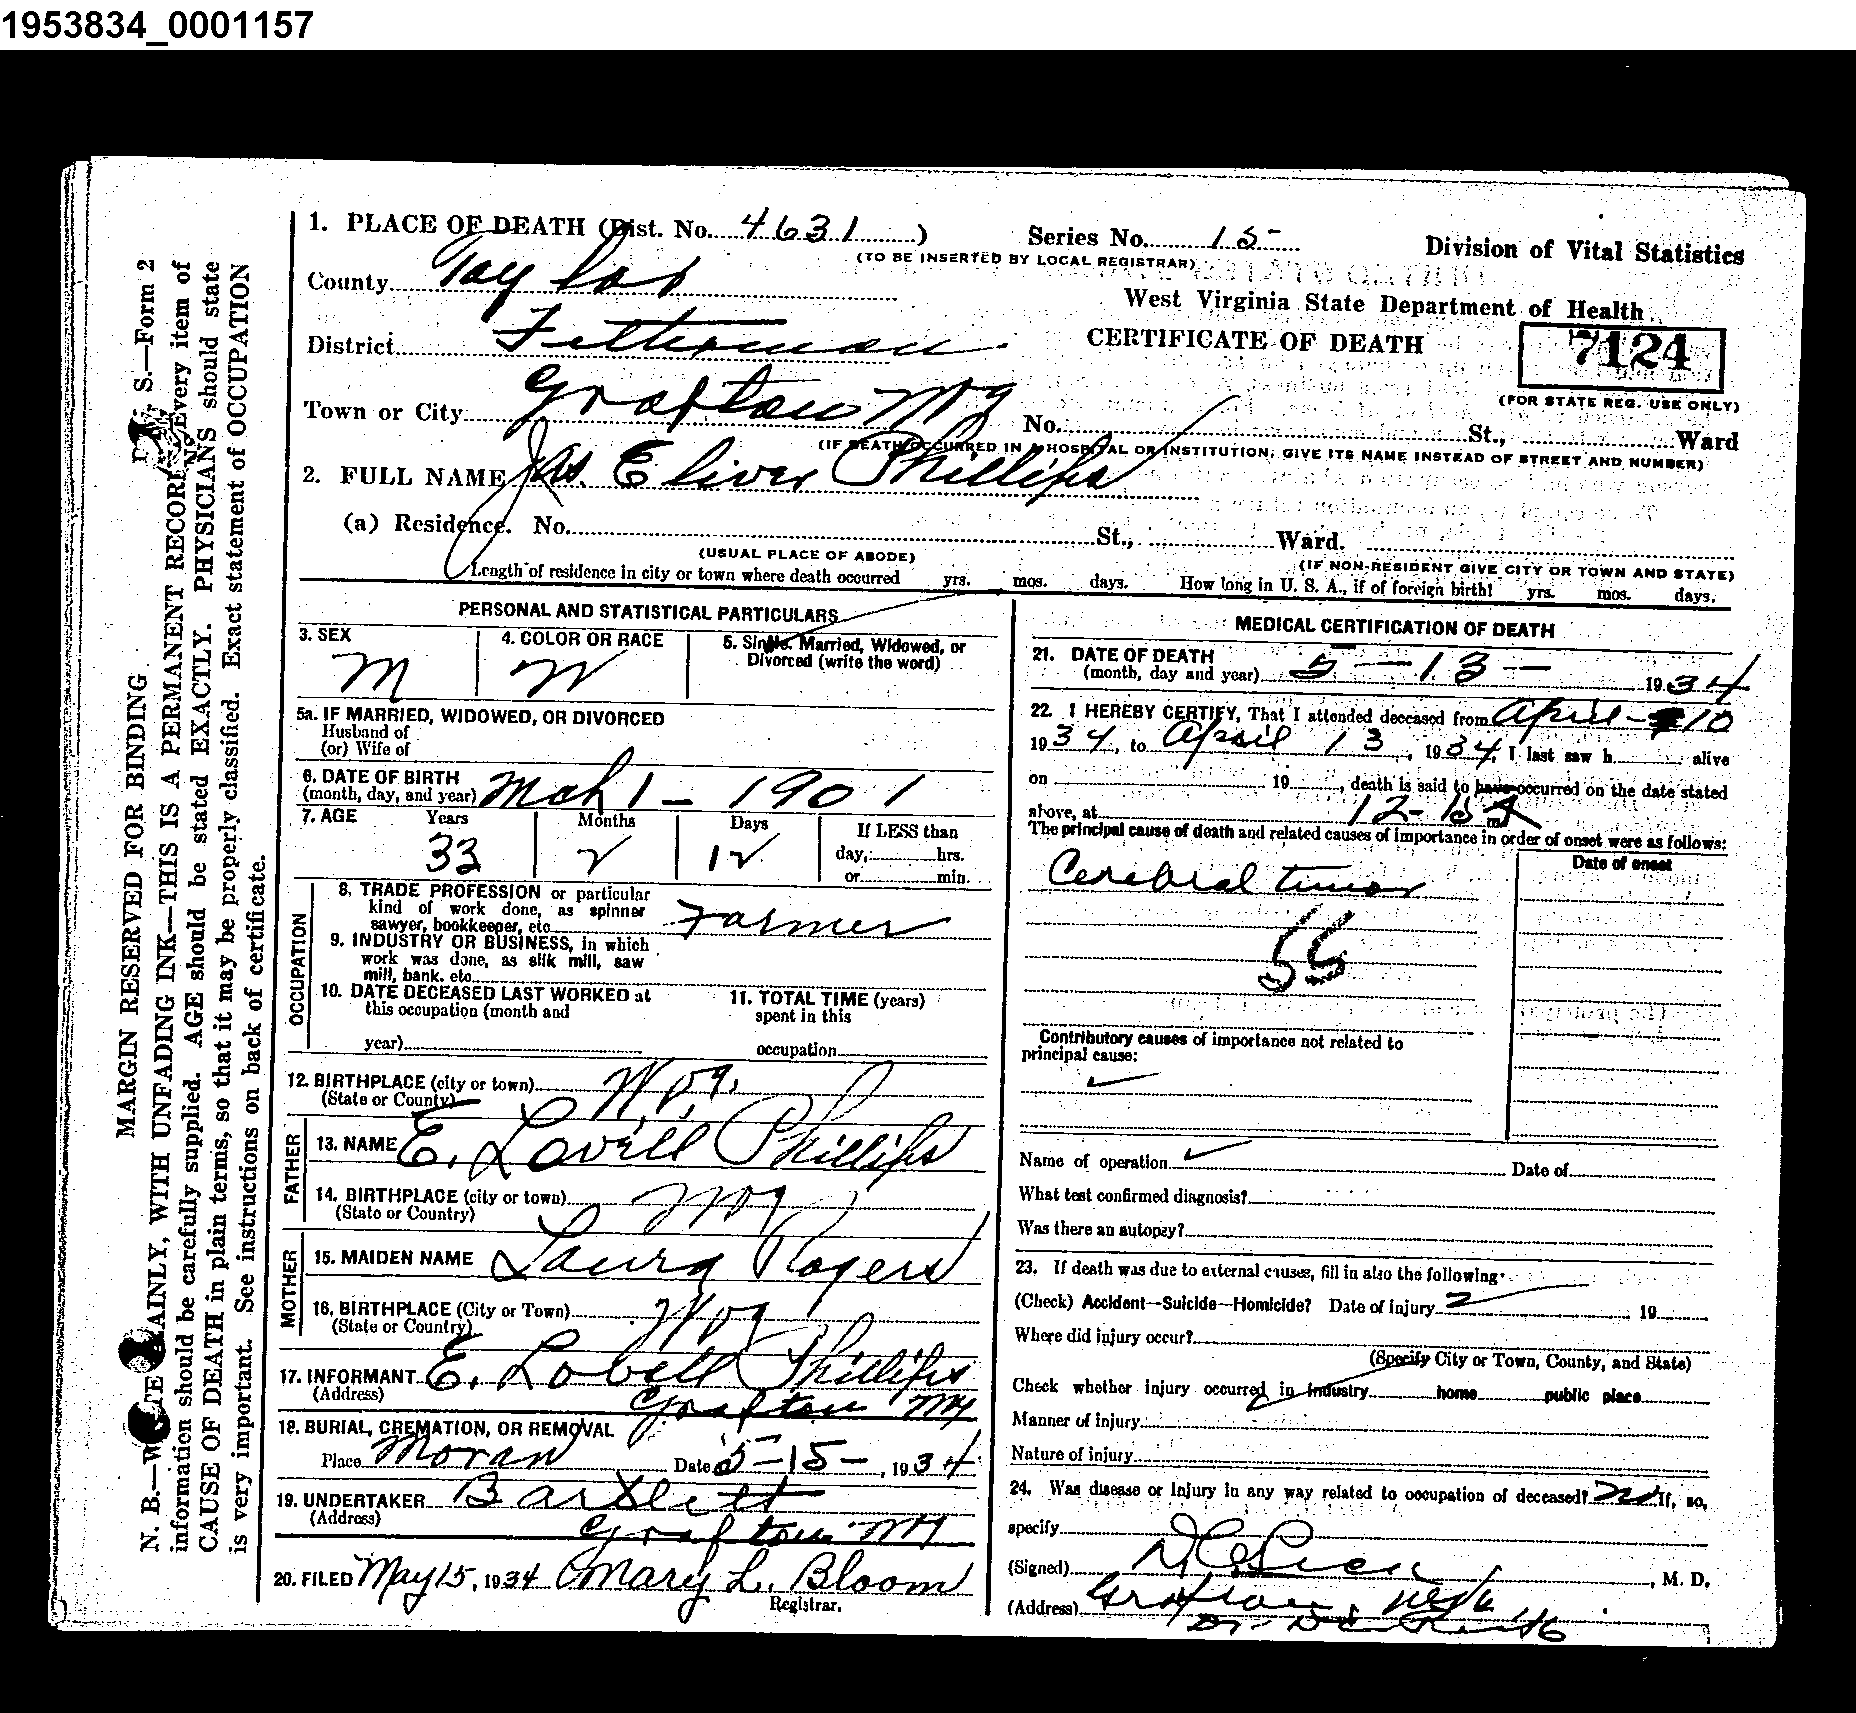 1953834_0001157
1. PLACE OF DEATH (Dist. No. 4631 ) Series No. 15
(TO BE INSERTED BY LOCAL REGISTRAR)
Division of Vital Statistics
County Taylor
West Virginia State Department of Health
District Fetterman
CERTIFICATE OF DEATH
7124
(FOR STATE REG. USE ONLY)
Town or City Grafton No. St., Ward
(IF DEATH OCCURRED IN A HOSPITAL OR INSTITUTION, GIVE ITS NAME INSTEAD OF STREET AND NUMBER)
2. FULL NAME Jas. Eliver Phillips
(a) Residence. No. St., Ward.
(USUAL PLACE OF ABODE) (IF NON-RESIDENT GIVE CITY OR TOWN AND STATE)
Length of residence in city or town where death occurred yrs. mos. days. How long in U. S. A., if of foreign birth! yrs. mos. days.
PERSONAL AND STATISTICAL PARTICULARS
3. SEX 4. COLOR OR RACE 5. Single, Married, Widowed, or
Divorced (write the word)
M W
5a. IF MARRIED, WIDOWED, OR DIVORCED
Husband of
(or) Wife of
6. DATE OF BIRTH
(month, day, and year) Mch 1 - 1901
7. AGE Years Months Days If LESS than
33 2 12 day, hrs.
or min.
OCCUPATION
8. TRADE PROFESSION or particular
kind of work done, as spinner
sawyer, bookkeeper, etc. Farmer
9. INDUSTRY OR BUSINESS, in which
work was done, as silk mill, saw
mill, bank. etc.
10. DATE DECEASED LAST WORKED at
this occupation (month and
year)
11. TOTAL TIME (years)
spent in this
occupation
12. BIRTHPLACE (city or town) W.Va.
(State or County)
FATHER
13. NAME E. Lovell Phillips
14. BIRTHPLACE (city or town) WVa
(State or Country)
MOTHER
15. MAIDEN NAME Laura Rogers
16. BIRTHPLACE (City or Town) WVa
(State or Country)
17. INFORMANT E. Lovell Phillips
(Address) Grafton WVa
18. BURIAL, CREMATION, OR REMOVAL
Place Moran Date 5-15-, 1934
19. UNDERTAKER Bartlett
(Address) Grafton WVa
20. FILED May 15, 1934 Mary L. Bloom
Registrar.
MEDICAL CERTIFICATION OF DEATH
21. DATE OF DEATH
(month, day and year) 5-13- 1934
22. I HEREBY CERTIFY, That I attended deceased from April 10
1934, to April 13, 1934, I last saw h alive
on 19 , death is said to have occurred on the date stated
above, at 12-15 A m.
The principal cause of death and related causes of importance in order of onset were as follows:
Date of onset
Cerebral tumor
55
Contributory causes of importance not related to
principal cause:
Name of operation Date of
What test confirmed diagnosis?
Was there an autopsy?
23. If death was due to external causes, fill in also the following:
(Check) Accident—Suicide—Homicide? Date of injury 19
Where did injury occur?
(Specify City or Town, County, and State)
Check whether injury occurred in industry home public place
Manner of injury
Nature of injury
24. Was disease or injury in any way related to occupation of deceased? no If, so,
specify
(Signed) , M. D.
(Address) Grafton, W Va
MARGIN RESERVED FOR BINDING
S.—Form 2
N. B.—WRITE PLAINLY, WITH UNFADING INK—THIS IS A PERMANENT RECORD. Every item of
information should be carefully supplied. AGE should be stated EXACTLY. PHYSICIANS should state
CAUSE OF DEATH in plain terms, so that it may be properly classified. Exact statement of OCCUPATION
is very important. See instructions on back of certificate.